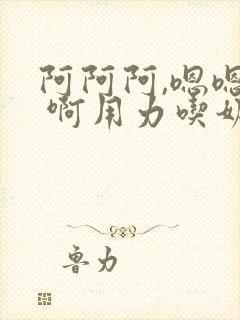 阿阿阿,嗯嗯
啊用力喫奶
鲁力